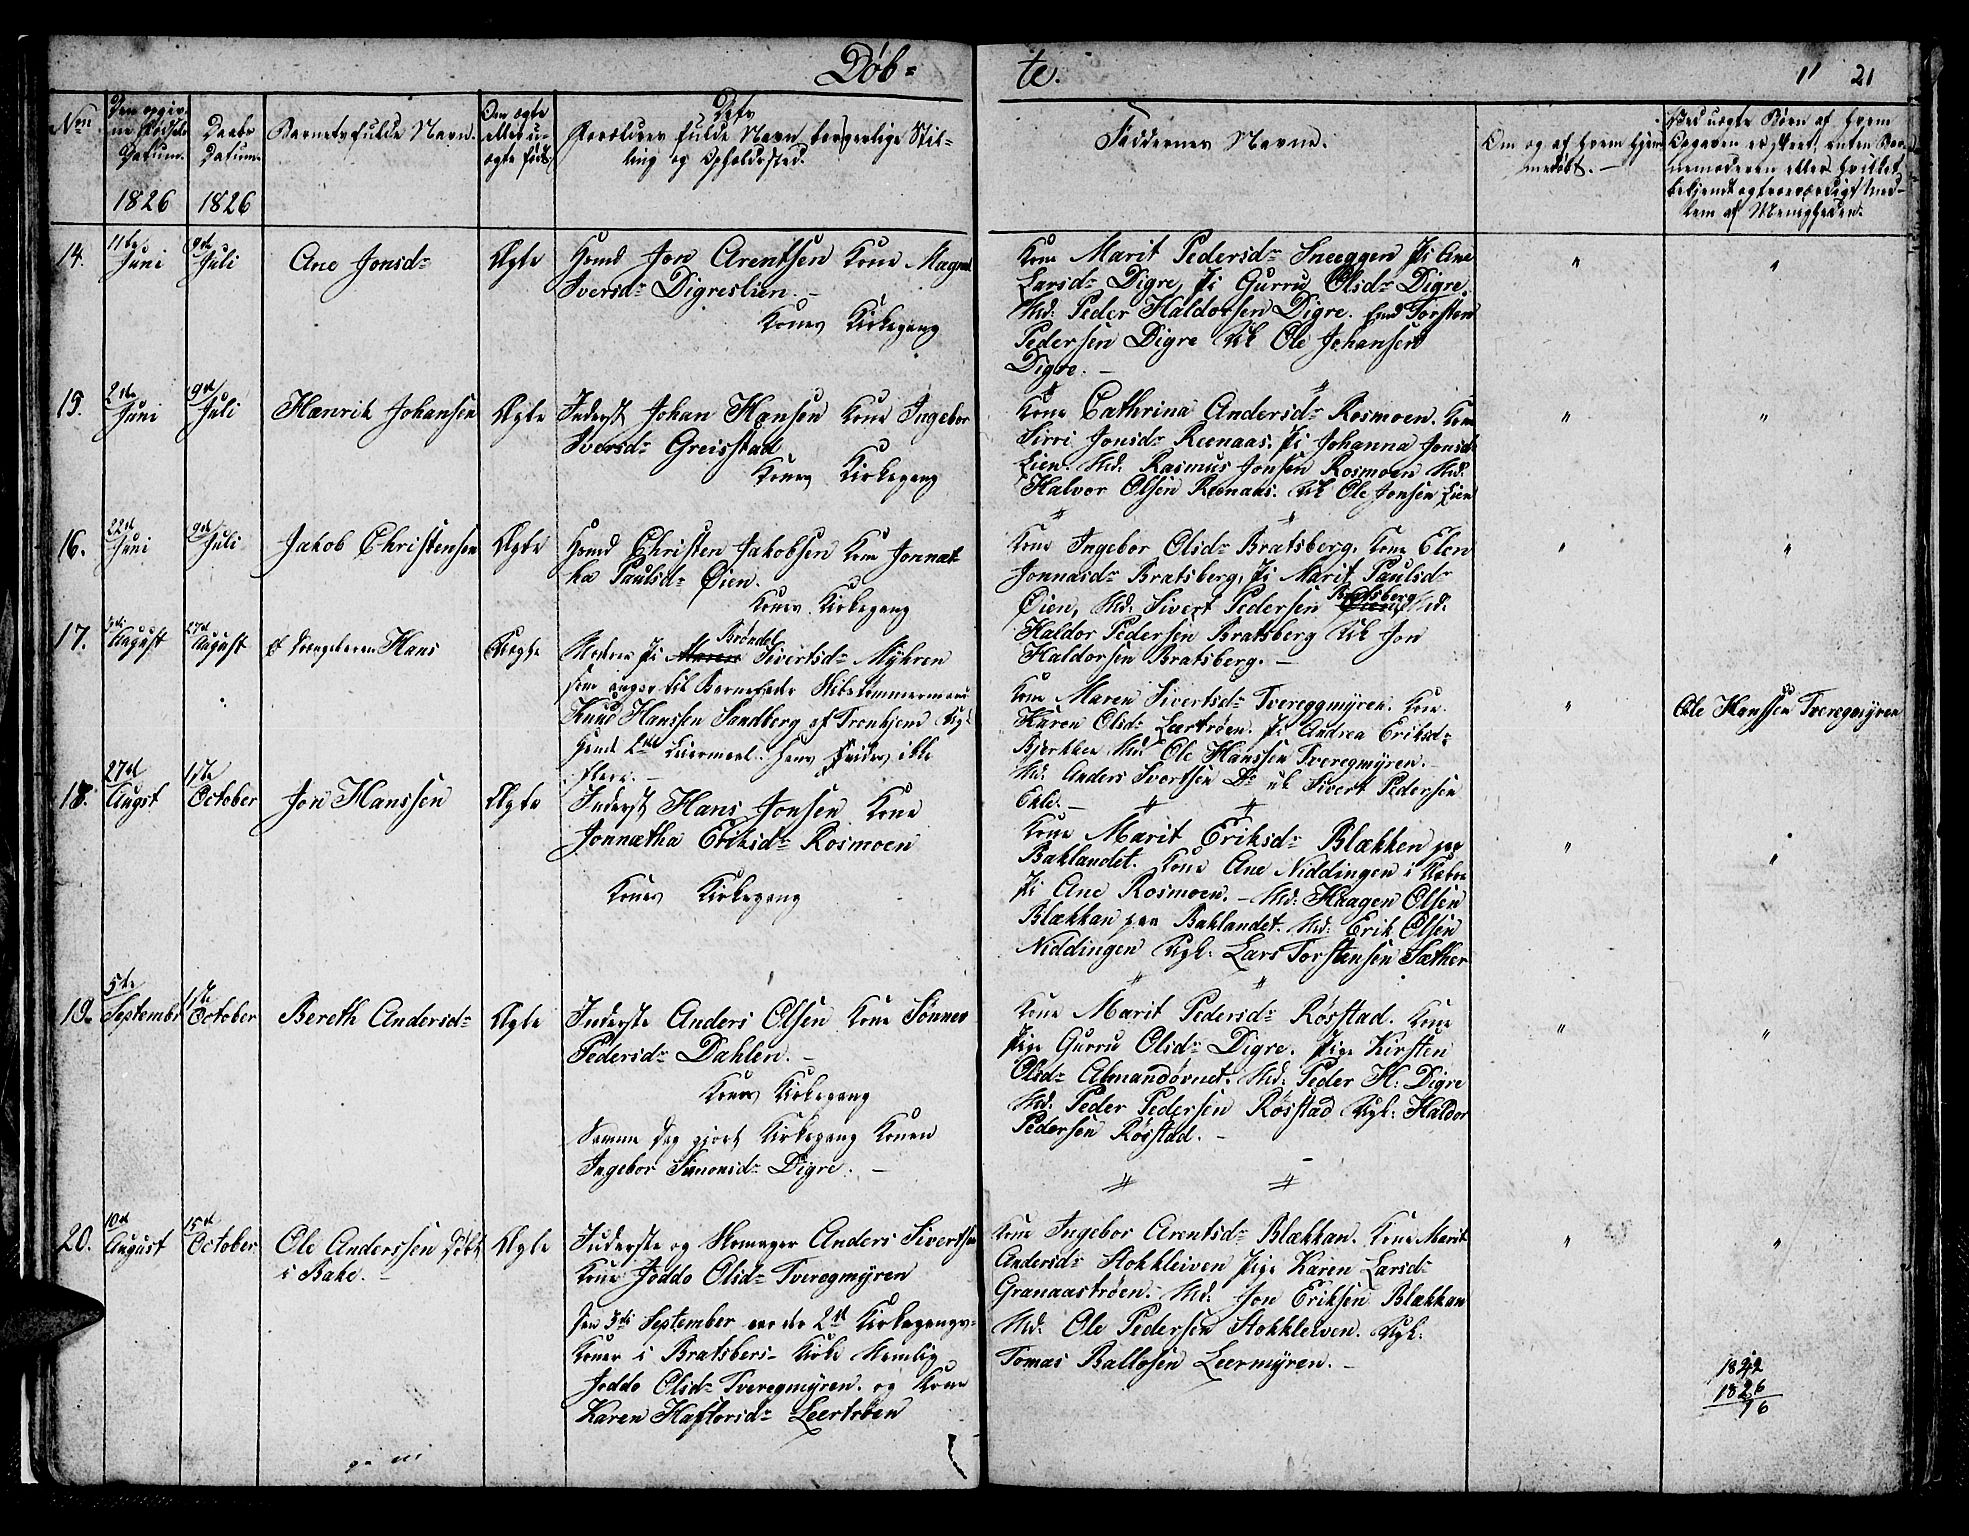 Døb=
te.
11 21
Den opgiv-
ne Fødsels
Datum.
1826
Daabs
Datum
1826
Barnets fulde Navn.
Om ægte
eller u-
ægte født
Dets
Forældres fulde Navn, borgerlige Stil-
ling og Opholdssted.
Faddernes Navne.
Om og af hvem hjem-
medøbt. -
Ved uægte Børn af hvem
Opgaven er skeet, enten
eller hvilket
bekiendt og troeværdigt Med-
lem af Menigheden.
14.
11te
Juni
9de
Juli
Ane Jonsdr
Ægte
Hmd Jon Arentsen Kone
Iversdr Digreslien. -
Kones Kirkegang
Kone Marit Pedersdr Sneeggen Pi Ane
Larsdr Digre, Pi Gurru Olsdr Digre.
Md. Peder Haldorsen Digre. Torsten
Pedersen Digre Ole Johansen
Digre. -
"
"
15.
2de
Juni
9de
Juli
Hænrik Johansen
Ægte
Inderst Johan Hansen Kone Ingebor
Iversdr Greisstad
Kones Kirkegang
Kone Cathrina Andersdr Rosmoen. Kone
Sirri Jonsdr Reenaas. Pi Johanna Jonsdr
Lien. Md. Rasmus Jonsen Rosmoen Md.
Halvor Olsen Reenaas. Ole Jonsen Lien
"
"
16.
22de
Juni
9de
Juli
Jakob Christensen
Ægte
Hmd Christen Jakobsen Kone Jonnet-
ha Paulsdr Øien.
Kones Kirkegang
Kone Ingebor Olsdr Bratsberg. Kone Elen
Jonnasdr Bratsberg, Pi Marit Paulsdr
Øien, Md. Sivert Pedersen Bratsberg Md.
Haldor Pedersen Bratsberg Jon
Haldorsen Bratsberg. -
"
"
17.
August
27de
August
Hans
Uægte
Moder Pi Maren Brøndel Sivertsdr Myhren
som angav til Barnefader Skibstømmermand
Knud Hanssen Sandberg af Tronhjem
2det Leiermaal. Hans ikke
flere. -
Kone Maren Sivertsdr Tvereggmyren. Kone
Karen Olsdr Leertrøen. Pi Andrea Eriksdr
Ole Hanssen Tveregmyren. -
Md. Anders Ivertsen Do Sivert Pedersen
"
Ole Hanssen Tveregmyren
18.
27de
August
1ste
October
Jon Hanssen
Ægte
Inderst Hans Jonsen Kone
Jonnetha Eriksdr Rosmoen
Kones Kirkegang
Kone Marit Eriksdr Blækken paa
Baklandet. Kone Ane Niddingen i
Pi Ane Rosmoen. - Md. Haagen Olsen
Blækkan paa Baklandet. Md. Erik Olsen
Niddingen Ugk. Lars Torstensen Sæther
"
"
19.
5te
September
1ste
October
Bereth Andersdr
Ægte
Inderste Anders Olsen Kone Sønnev
Pedersdr Dahlen. -
Kones Kirkegang
Samme Dag gjort Kirkegang Konen
Ingebor Simonsdr Digre. -
Kone Marit Pedersdr Røsstad. Kone
Pige Gurru Olsdr Digre. Pige Kirsten
Olsdr Almandørnet. Md. Peder H: Digre
Md. Peder Pedersen Røsstad Ugk. Haldor
Pedersen Røsstad. -
"
"
20.
10de
August
15de
October
Ole Anderssen døbt
i Bake. -
Ægte
Inderste og Skomager Anders Sivertsen
Kone Joddo Olsdr Tveregmyren
Den 3die September var der 2de Kirkegangs-
Koner i Bratsbergs Kirke Nemlig
Joddo Olsdr Tveregmyren. og Kone
Karen Haftorsdr Leertrøen
Kone Ingebor Arentsdr Blækkan. Kone Marit
Andersdr Stokkleiven Pige Karen Larsdr
Granaastrøen. Md. Jon Eriksen Blækkan
Md. Ole Pedersen Stokkleiven. Ugk.
Tomas Ballosen Leermyren. -
"
"
1842
1826
16